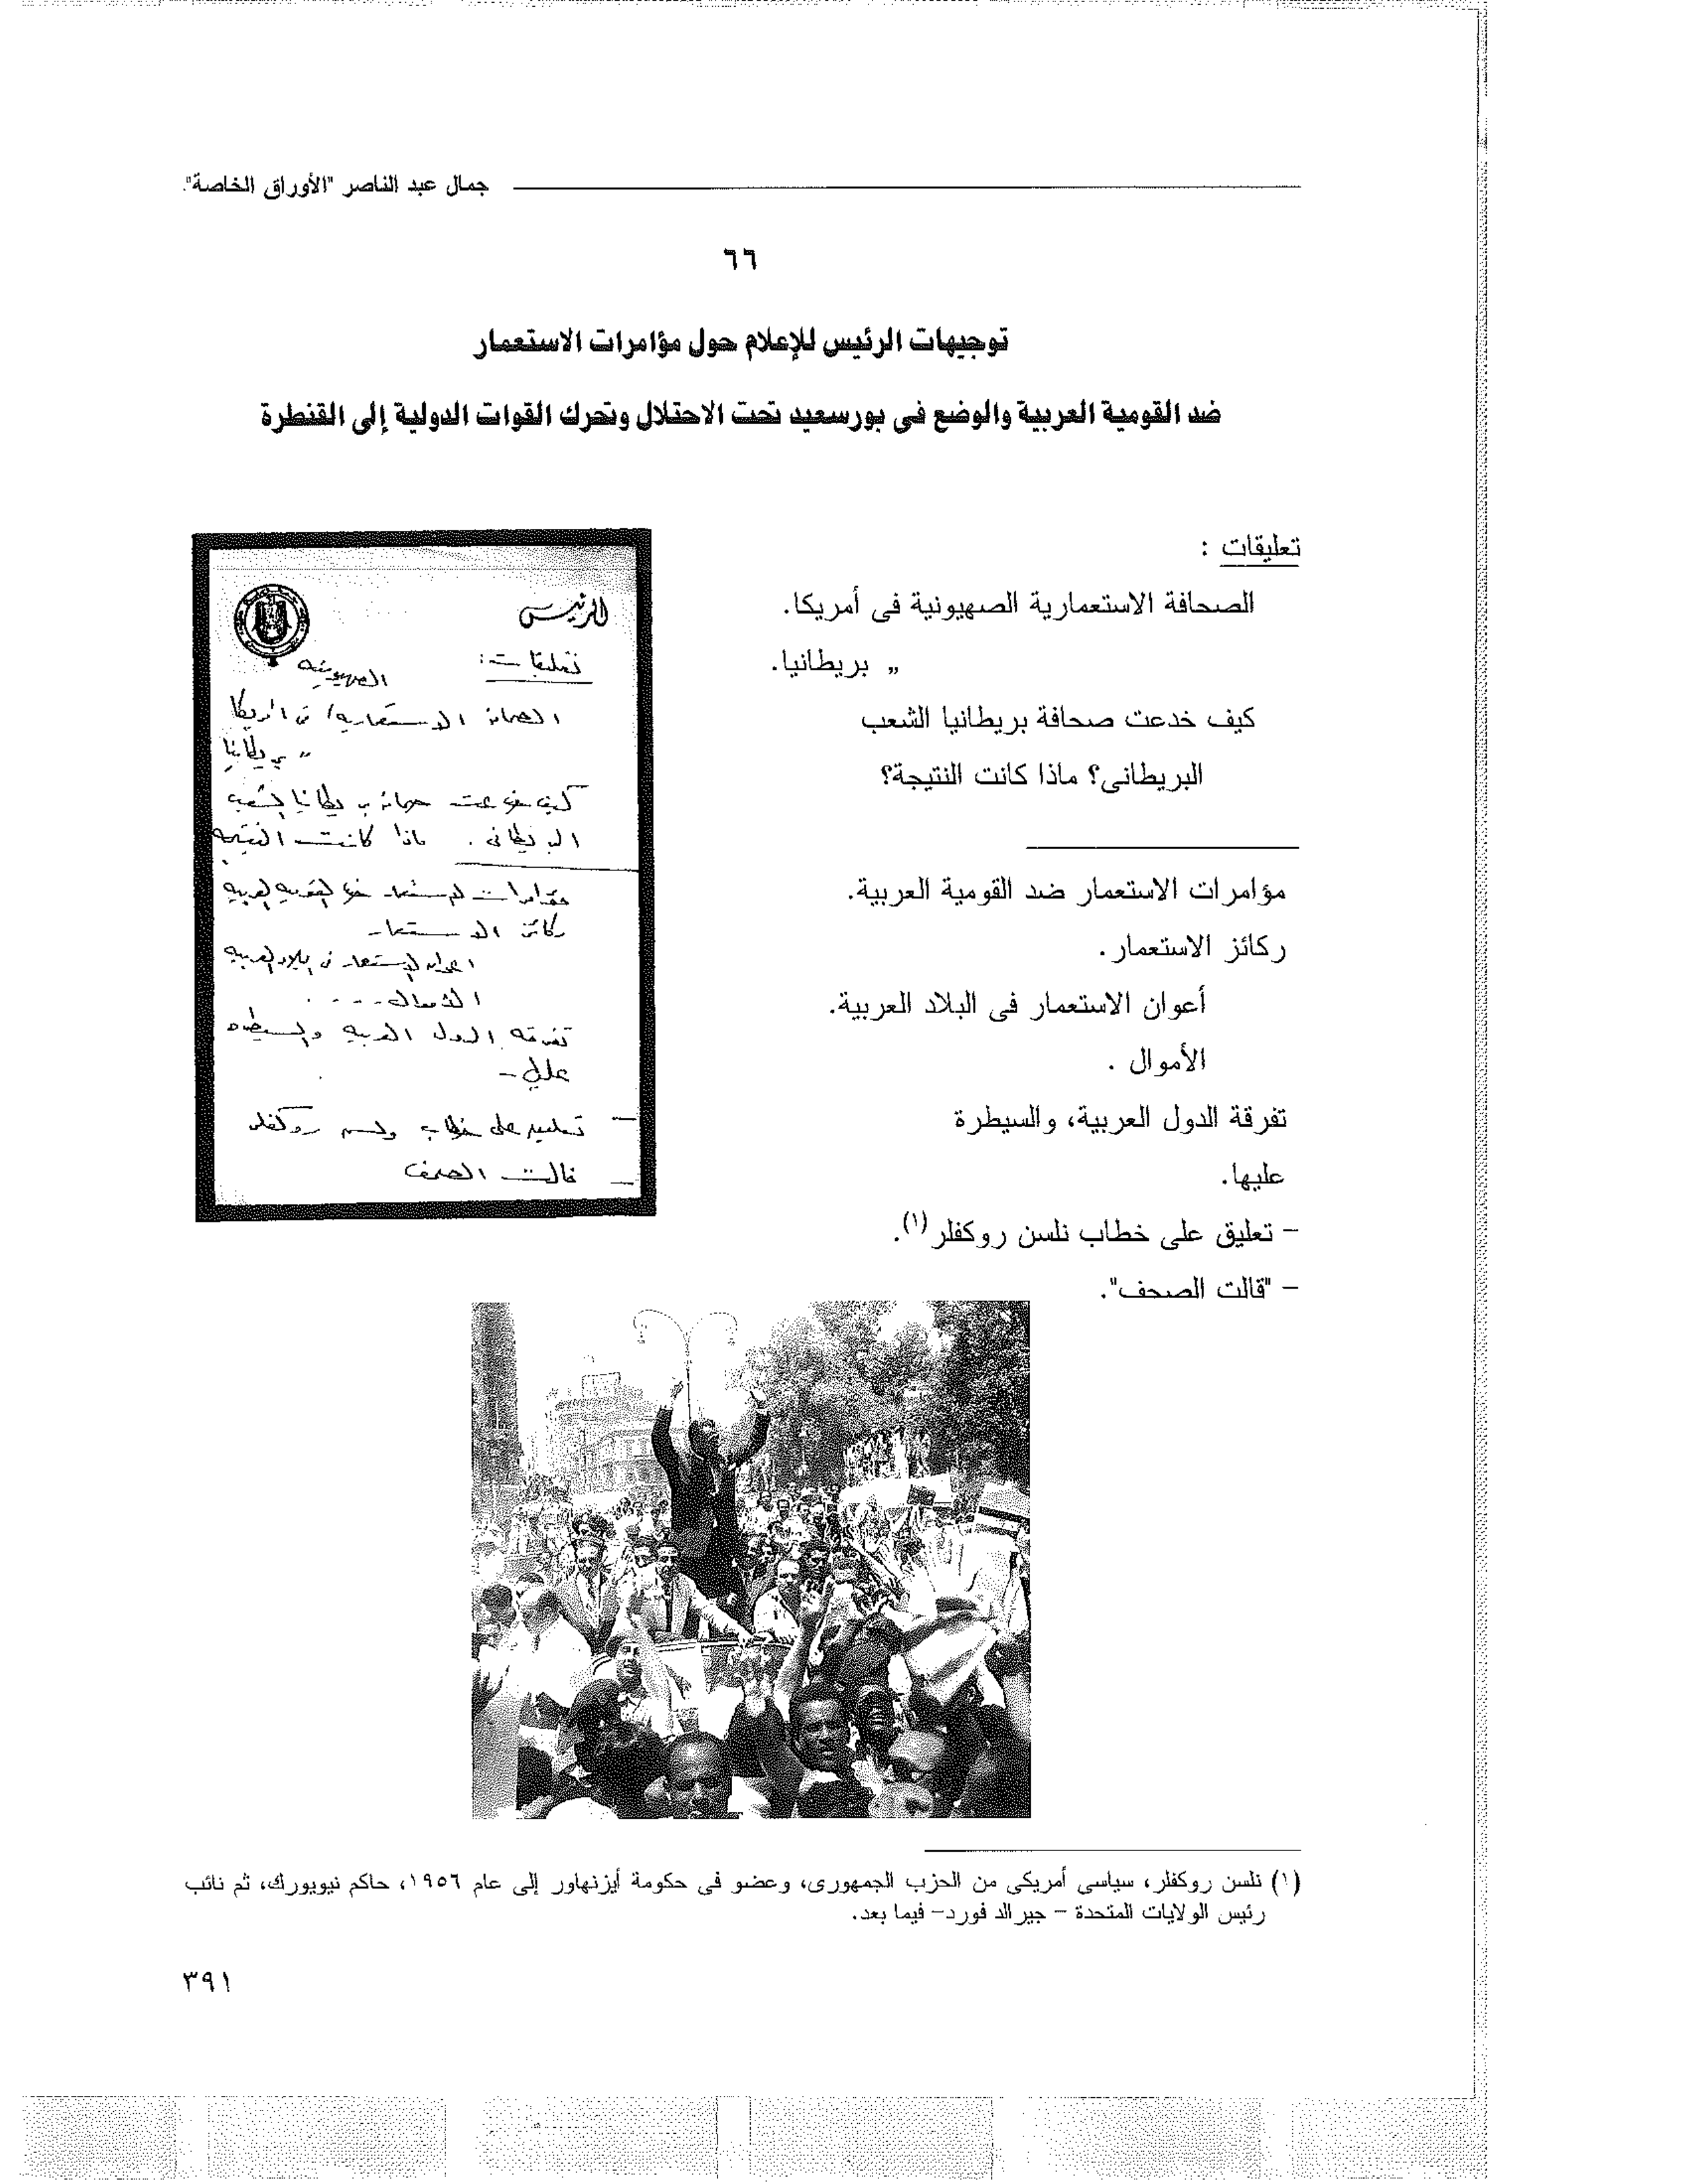 جمال عبد الناصر "الأوراق الخاصة".
٦٦
توجيهات الرئيس للإعلام حول مؤامرات الاستعمار
ضد القومية العربية والوضع فى بورسعيد تحت الاحتلال وتحرك القوات الدولية إلى القنطرة
تعليقات :
الصحافة الاستعمارية الصهيونية فى أمريكا.
,, بريطانيا.
كيف خدعت صحافة بريطانيا الشعب
البريطانى؟ ماذا كانت النتيجة؟
مؤامرات الاستعمار ضد القومية العربية.
ركائز الاستعمار.
أعوان الاستعمار فى البلاد العربية.
الأموال .
تفرقة الدول العربية، والسيطرة
عليها.
– تعليق على خطاب نلسن روكفلر(١).
– "قالت الصحف".
الرئيس
تعليقات :
الصهيونيه
الصحافة الاستعماريه / فى امريكا
,, بريطانيا
كيف خدعت صحافة بريطانيا الشعب
البريطانى . ماذا كانت النتيجه
مؤامرات الاستعمار ضد القوميه العربيه
ركائز الاستعمار
اعوان الاستعمار فى البلاد العربيه
الأموال - - - .
تفرقه الدول العربيه والسيطره
عليها -
– تعليق على خطاب نلسن روكفلر
– قالت الصحف
(١) نلسن روكفلر، سياسى أمريكى من الحزب الجمهورى، وعضو فى حكومة أيزنهاور إلى عام ١٩٥٦، حاكم نيويورك، ثم نائب
رئيس الولايات المتحدة – جيرالد فورد– فيما بعد.
٣٩١